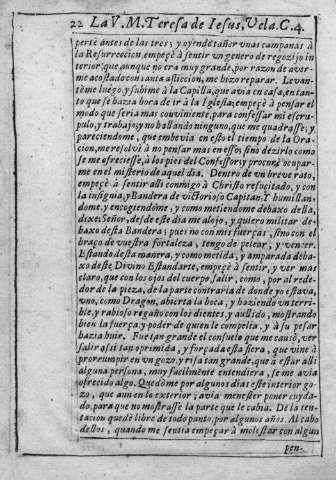 22 La V. M. Teresa de Iesus, Vela. C. 4.
pertè antes de las tres; y oyendo tañer vnas campanas à
la Resurreccion, empeçè à sentir vn genero de regozijo in
terior que, aunque no era muy grande, por razon de aver-
me acostado con tanta afliccion, me hizo reparar. Levan-
tème luego, y subìme à la Capilla, que avia en casa, en tan-
to que se hazia hora de ir à la Iglesia; empeçè à pensar el
modo que seria mas conviniente, para confessar mi escru-
pulo, y trabajo; y no hallando ninguno, que me quadrasse; y
pareciendome, que embevia en esto el tiempo de la Ora-
cion, me resolvì à no pensar mas en esso; sino dezirlo como
se me ofreciesse, à los pies del Confessor; y procurè ocupar-
me en el misterio de aquel dia. Dentro de vn breve rato,
empeçè à sentir alli conmigo à Christo resucitado, y con
la insignia, y Bandera de victorioso Capitan. Y humillan-
dome, y encogiendome, y como metiendome debaxo della,
dixe: Señor, desde este dia me alojo, y quiero militar de-
baxo desta Bandera; pues no con mis fuerças, sino con el
braço de vuestra fortaleza, tengo de pelear, y vencer.
Estando desta manera, y como metida, y amparada deba-
xo deste Divino Estandarte, empeçè à sentir, y ver mas
claro, que con los ojos del cuerpo, salir, como, por al rede-
dor de la pieza, de la parte contraria de donde yo estava,
vno, como Dragon, abierta la boca, y haziendo vn terri-
ble, y rabioso regaño con los dientes, y aullido, mostrando
bien la fuerça, y poder de quien le compelia, y à su pesar
hazia huir. Fue tan grande el consuelo que me causò, ver
salir assi tan oprimida, y forçada esta fiera, que vine à
prorrumpir en vn gozo, y risa tan grande, que à estar alli
alguna persona, muy facilmente entendiera, se me avia
ofrecido algo. Quedòme por algunos dias este interior go-
zo, que aun en lo exterior, avia menester poner cuyda-
do, para que no mostrasse la parte que le cabia. De la ten-
tacion quedè libre de todo punto, por algunos años. Al cabo
dellos, quando me sentia empeçar à molestar con algun
pen-